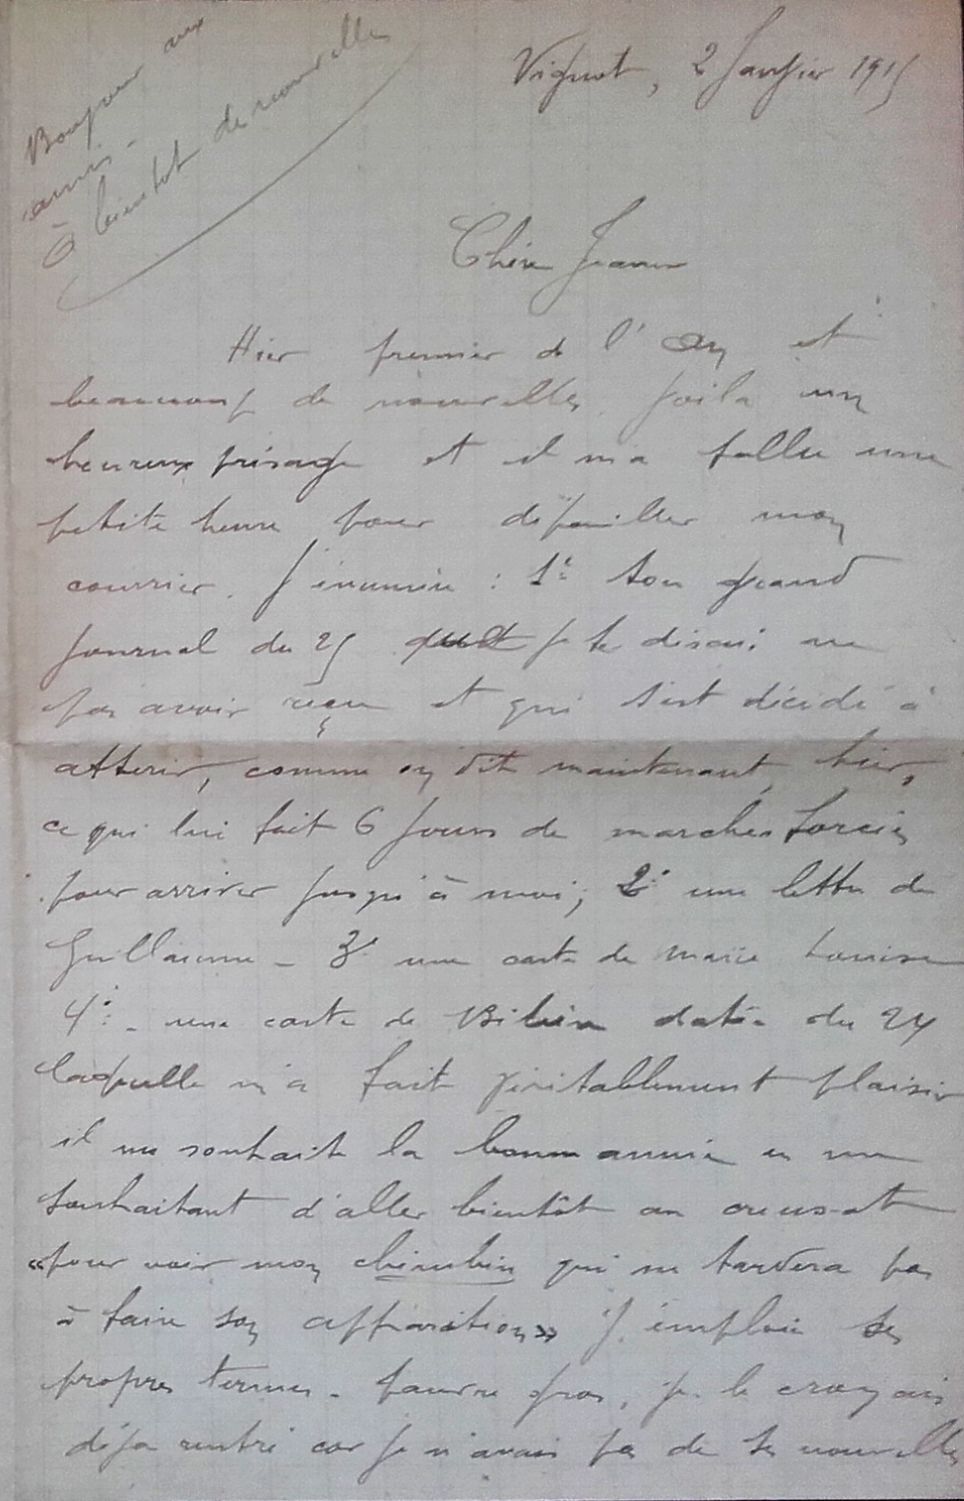 Bonjour aux
amis -
à bientôt de nouvelles
Vignot, 2 Janvier 1915
Chère Jeanne
Hier premier de l'an et
beaucoup de nouvelles. Voila un
heureux présage et il m'a fallu une
petite heure pour dépouiller mon
courrier. J'énumère : 1º ton grand
journal du 25 que je te disais ne
pas avoir reçu et qui s'est décidé à
atterir, comme on dit maintenant, hier,
ce qui lui fait 6 jours de marches forcées
pour arriver jusqu'à moi; 2º une lettre de
Guillaume - 3º une carte de Marie Louise
4º - une carte de datée du 24
laquelle m'a fait véritablement plaisir
il me souhaite la bonne année en me
souhaitant d'aller bientôt au creusot
"pour voir mon chérubin qui ne tardera pas
à faire son apparition" J'emploie ses
propres termes - pauvre gros, je le croyais
déja rentré car je n'avais pas de ses nouvelles